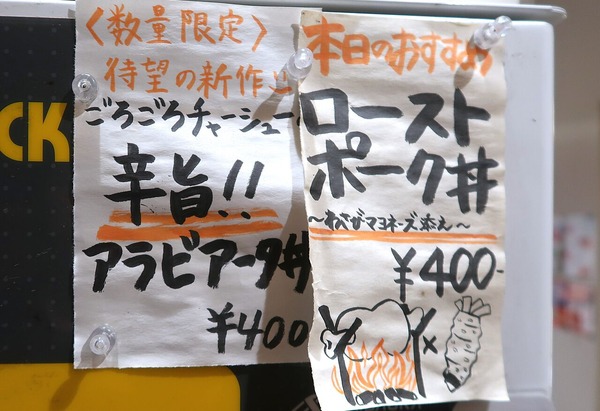 CK
〈数量限定〉
待望の新作
ごろごろチャーシュー
辛旨!!
アラビアータ丼
¥400
本日のおすすめ
ロースト
ポーク丼
〜わさびマヨネーズ添え〜
¥400-
×